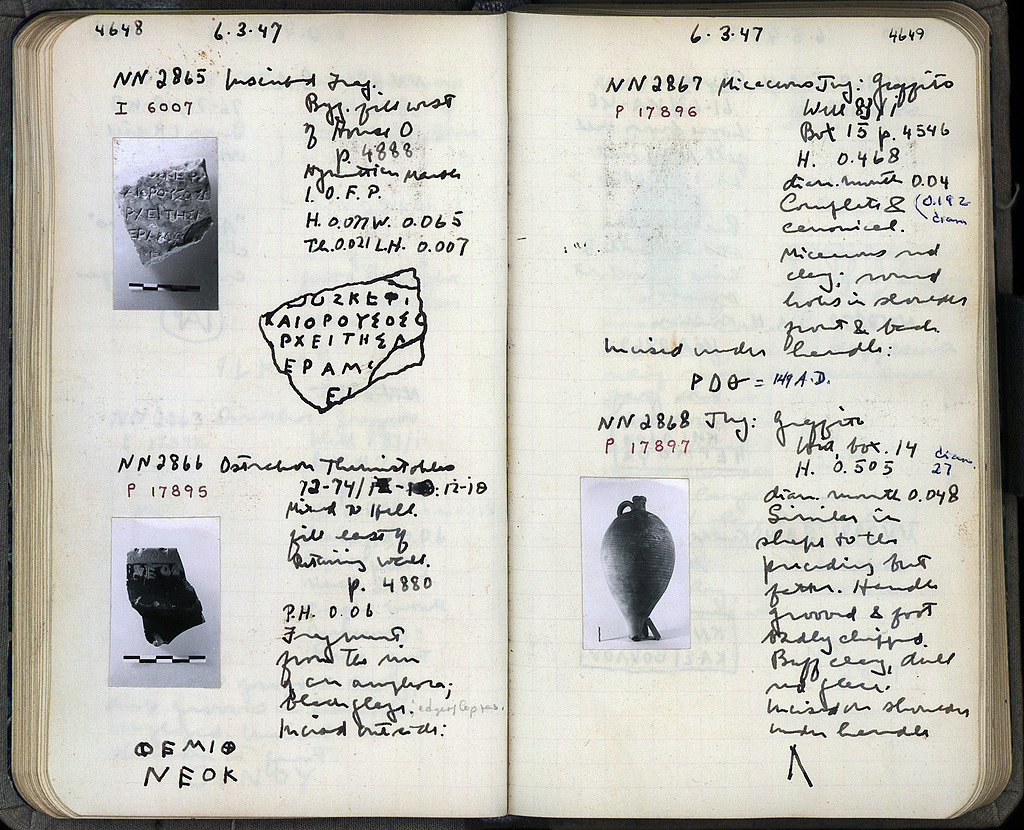 4648 6.3.47
NN 2865 Inscribed Frag.
I 6007
Byz. fill west
of House O
p. 4888
Hymettian Marble
I. O. F. P.
H. 0.077 W. 0.065
Th. 0.021 L.H. 0.007
ΚΑΙΟΡΟΥΣΟΣ
ΡΧΕΙΤΗΣΛ
ΕΡΑΜ
ΕΙ
NN 2866 Ostrakon Themistokles
P 17895
72-74/ 12-18
Mixed to Hell.
fill east of
Retaining wall.
p. 4880
P.H. 0.06
Fragment
from the rim
of an amphora;
black glaze.
Incised outside:
ΘΕΜΙΘ
ΝΕΟΚ
6.3.47 4649
NN 2867 Micaceous Jug: Graffito
P 17896
Well
Box 15 p. 4546
H. 0.468
diam. mouth 0.04
Complete & (0.192 diam
canonical.
Micaceous red
clay; round
holes in shoulder
front & back
Incised under handle:
ΡΠΘ = 149 A.D.
NN 2868 Jug: Graffito
P 17897
box. 14
H. 0.505 diam. 27
diam. mouth 0.048
Similar in
shape to the
preceding but
fatter. Handle
grooved & foot
badly chipped.
Buff clay, dull
red glaze.
Incised on shoulder
under handle
Λ